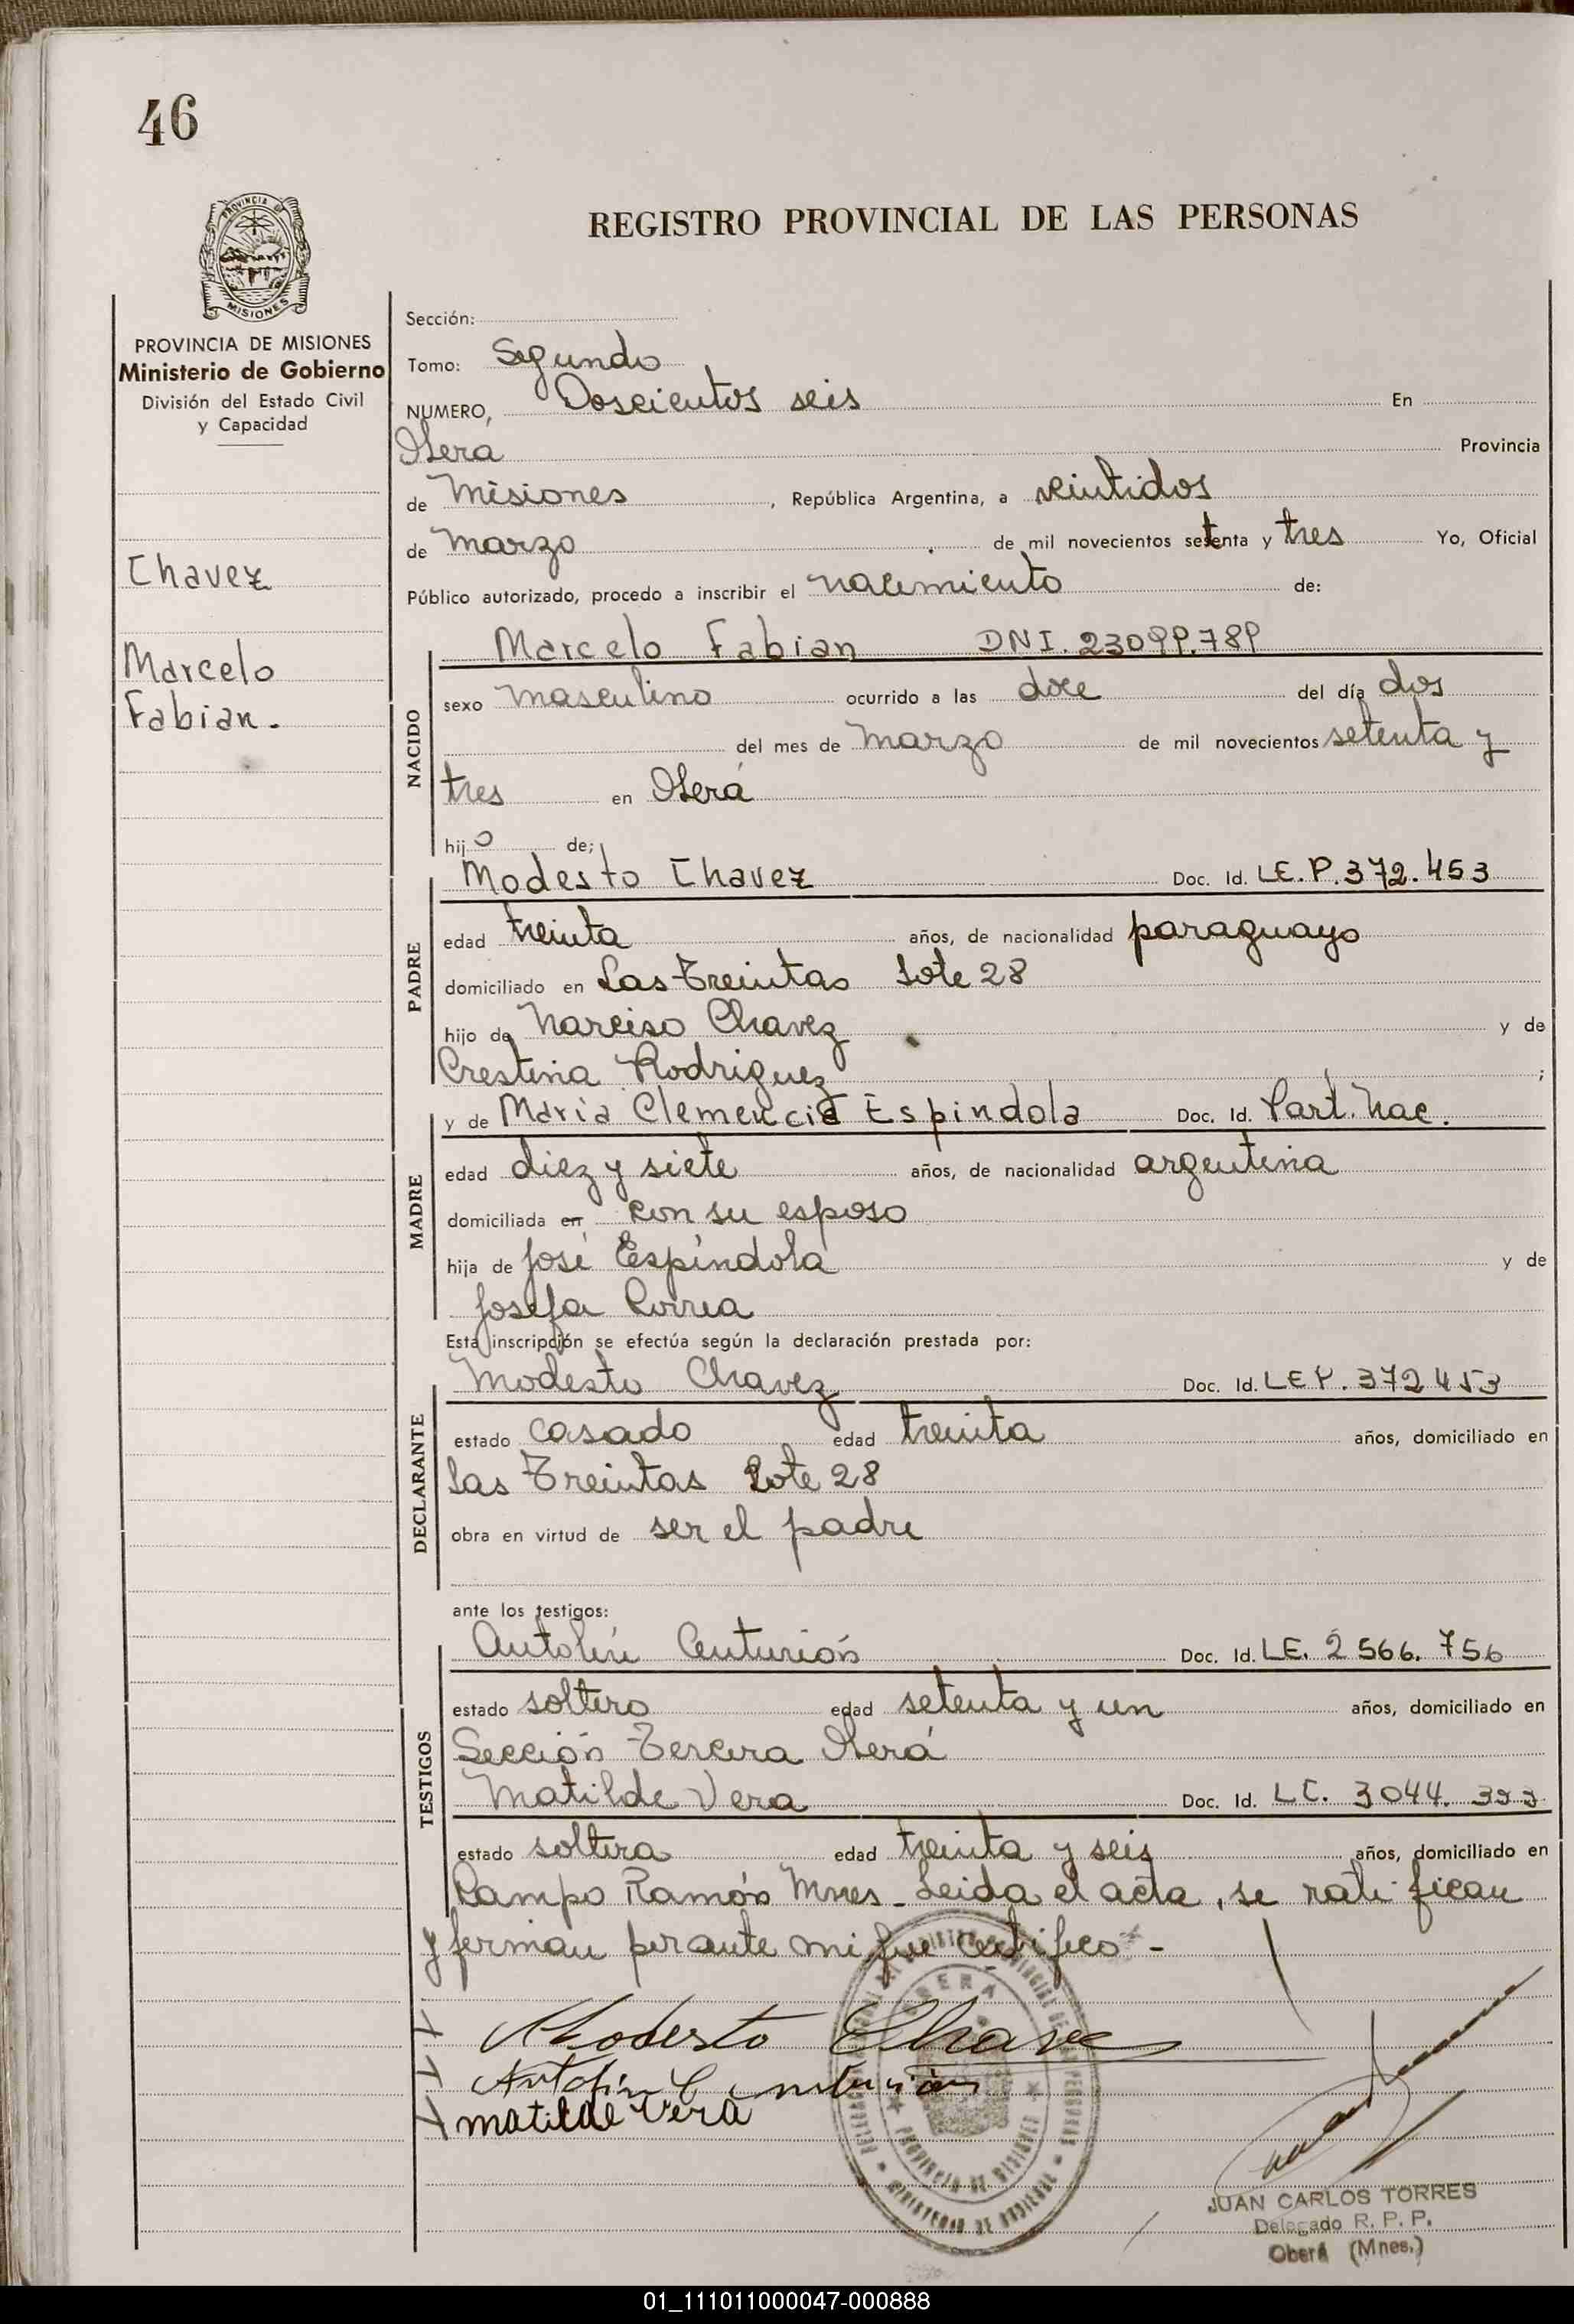 46
PROVINCIA DE
MISIONES
PROVINCIA DE MISIONES
Ministerio de Gobierno
División del Estado Civil
y Capacidad
Chavez
Marcelo
Fabian.
REGISTRO PROVINCIAL DE LAS PERSONAS
Sección:
Tomo: Segundo
NUMERO, Doscientos seis En
Oberá Provincia
de Misiones, República Argentina, a veintidos
de Marzo de mil novecientos setenta y tres Yo, Oficial
Público autorizado, procedo a inscribir el nacimiento de:
NACIDO
Marcelo Fabian DNI. 23099.789
sexo masculino ocurrido a las doce del día dos
del mes de Marzo de mil novecientos setenta y
tres en Oberá
hijo de;
PADRE
Modesto Chavez Doc. Id. LE.P. 372.453
edad treinta años, de nacionalidad paraguayo
domiciliado en Las Treintas Lote 28
hijo de Narciso Chavez y de
Crestina Rodriguez;
MADRE
y de Maria Clemencia Espindola Doc. Id. Part. Nac.
edad diez y siete años, de nacionalidad argentina
domiciliada en con su esposo
hija de José Espíndola y de
Josefa Correa
Esta inscripción se efectúa según la declaración prestada por:
DECLARANTE
Modesto Chavez Doc. Id. LE P. 372453
estado casado edad treinta años, domiciliado en
Las Treintas Lote 28
obra en virtud de ser el padre
ante los testigos:
TESTIGOS
Autolin Centurión Doc. Id. LE. 2566.756
estado soltero edad setenta y un años, domiciliado en
Sección Tercera Oberá
Matilde Vera Doc. Id. LC. 3044.
estado soltera edad treinta y seis años, domiciliado en
Campo Ramón Mnes. Leida el acta, se ratifican
y firman por ante mi que certifico -
Modesto Chavez
Antolin Centurión
Matilde Vera
OBERA
PROVINCIA DE MISIONES
MINISTERIO DE GOBIERNO
JUAN CARLOS TORRES
Delegado R. P. P.
Oberá (Mnes.)
01_111011000047-000888